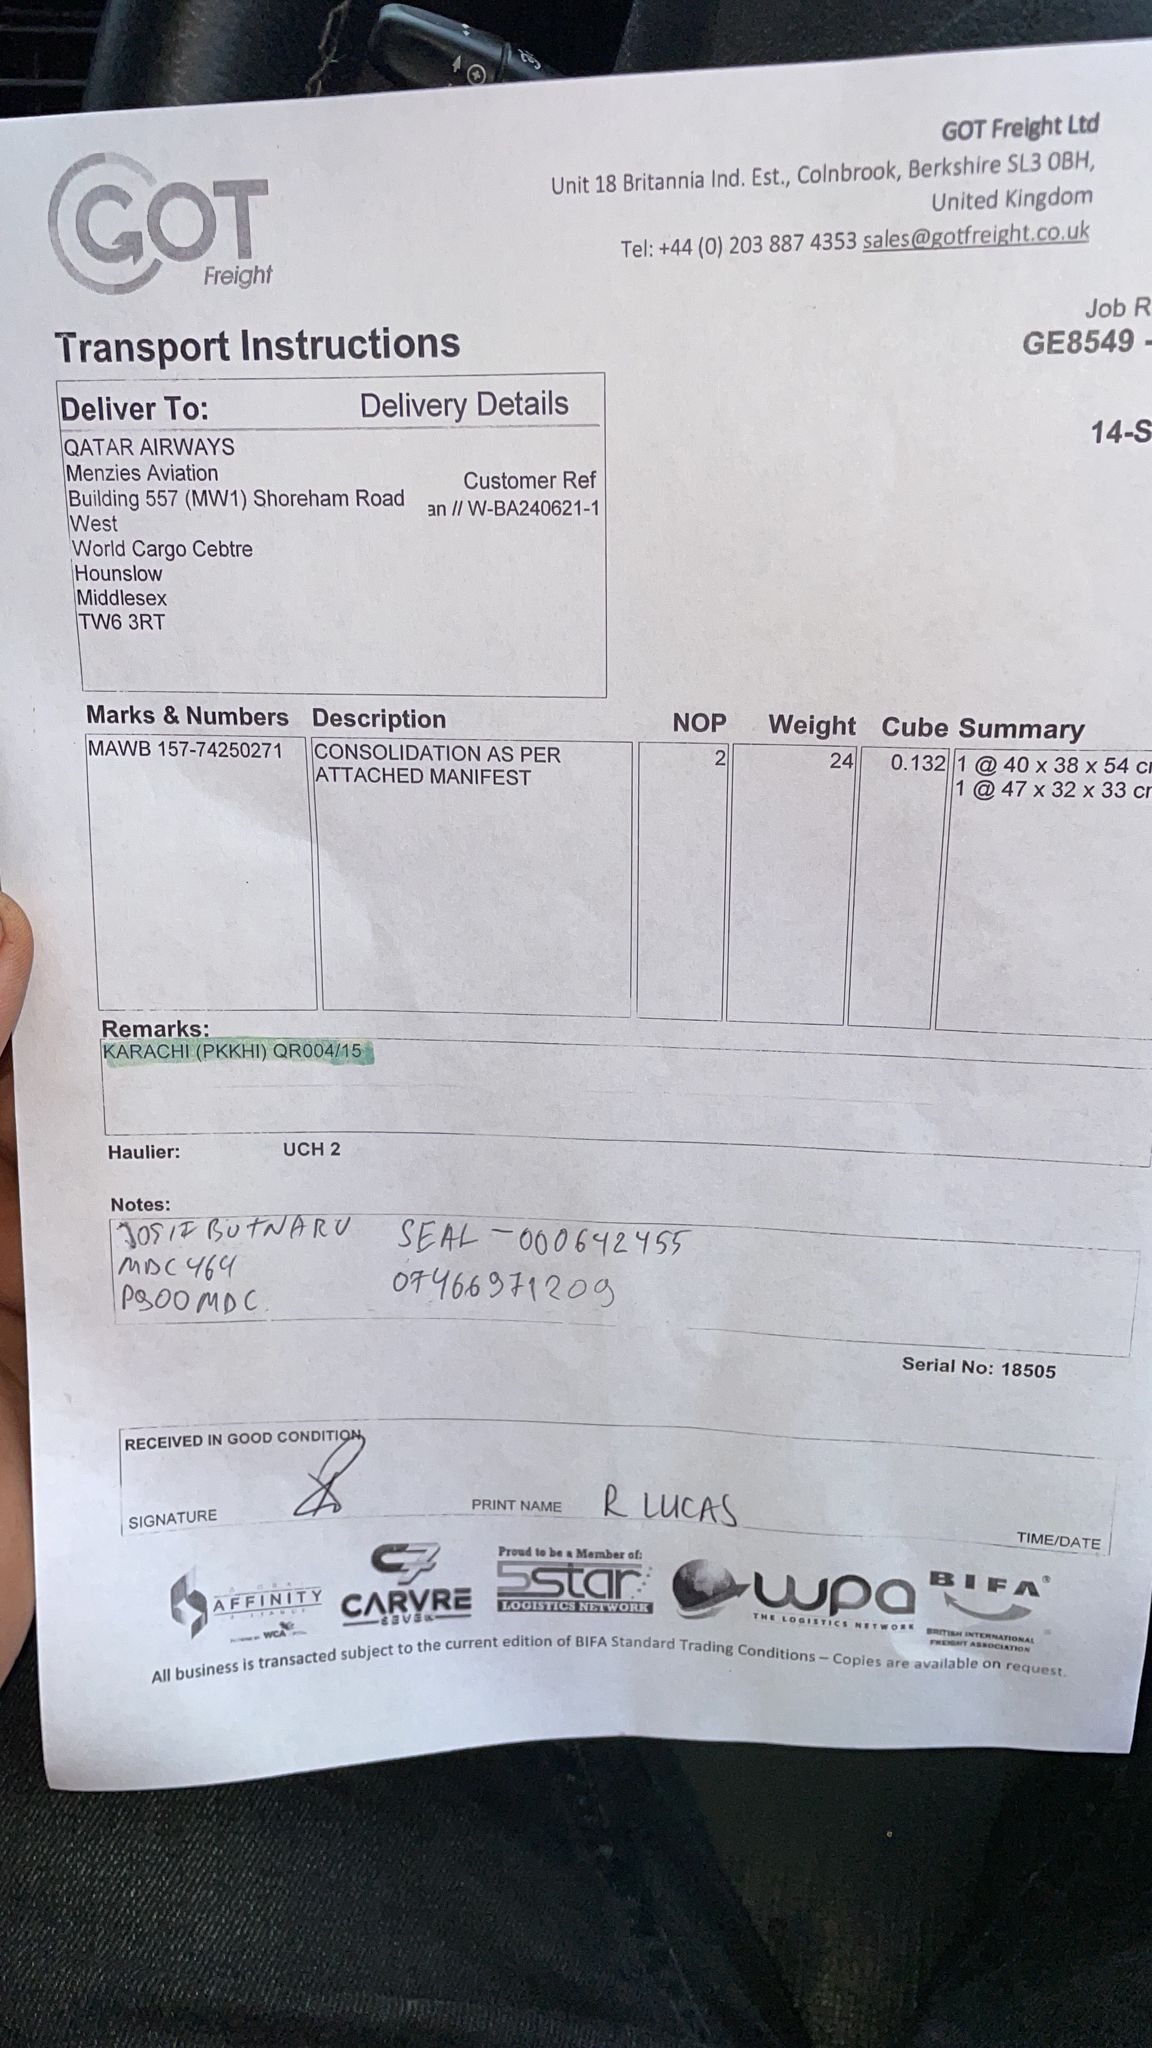 GOT
Freight
GOT Freight Ltd
Unit 18 Britannia Ind. Est., Colnbrook, Berkshire SL3 0BH,
United Kingdom
Tel: +44 (0) 203 887 4353 sales@gotfreight.co.uk
Job R
GE8549 -
14-S
Transport Instructions
Deliver To: Delivery Details
QATAR AIRWAYS
Menzies Aviation
Building 557 (MW1) Shoreham Road
West
World Cargo Cebtre
Hounslow
Middlesex
TW6 3RT
Customer Ref
an // W-BA240621-1
Marks & Numbers Description NOP Weight Cube Summary
MAWB 157-74250271 CONSOLIDATION AS PER 2 24 0.132 1 @ 40 x 38 x 54 c
ATTACHED MANIFEST 1 @ 47 x 32 x 33 c
Remarks:
KARACHI (PKKHI) QR004/15
Haulier: UCH 2
Notes:
JOSIF BUTNARU SEAL - 000642455
MDC 464 07466971209
P900MDC.
Serial No: 18505
RECEIVED IN GOOD CONDITION
SIGNATURE PRINT NAME R LUCAS
TIME/DATE
AFFINITY
WCA
CARVRE
SEVEN
Proud to be a Member of:
5star
LOGISTICS NETWORK
wpa
THE LOGISTICS NETWORK
BIFA®
BRITISH INTERNATIONAL
FREIGHT ASSOCIATION
All business is transacted subject to the current edition of BIFA Standard Trading Conditions – Copies are available on request.